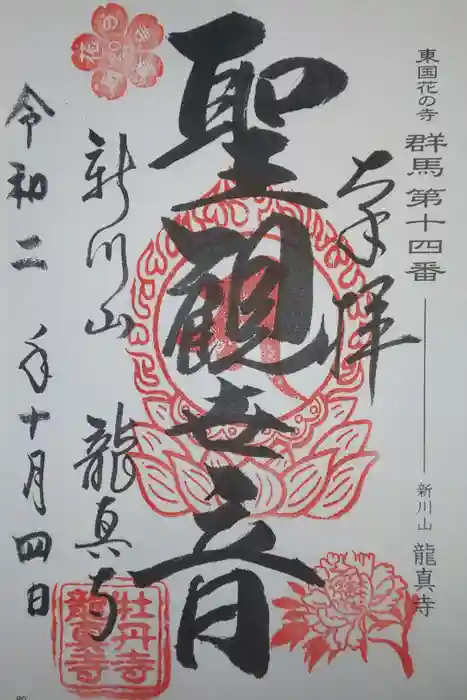 東国花の寺 群馬第十四番 新川山 龍真寺
奉拝
聖観世音
新川山 龍真寺
令和二年十月四日
牡丹寺
龍真寺